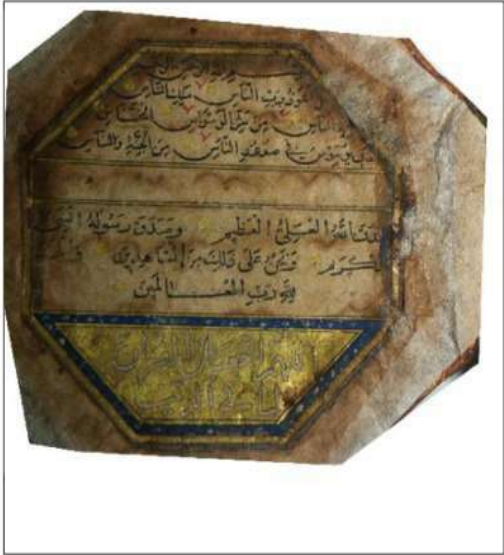 الرحمن
اعوذ برب الناس ملك الناس
الناس من شر الوسواس الخناس
الذي يوسوس في صدور الناس من الجنة والناس
صدق الله العلي العظيم وصدق رسوله النبي
الكريم ونحن على ذلك من الشاهدين
لله رب العالمين
اللهم اجعل القرآن